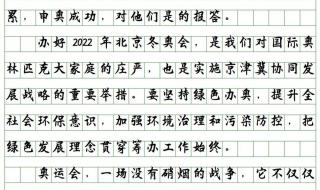 累，申奥成功，对他们是的报答。
办好2022年北京冬奥会，是我们对国际奥
林匹克大家庭的庄严，也是实施京津冀协同发
展战略的重要举措。要坚持绿色办奥，提升全
社会环保意识，加强环境治理和污染防控，把
绿色发展理念贯穿筹办工作始终。
奥运会，一场没有硝烟的战争，它不仅仅